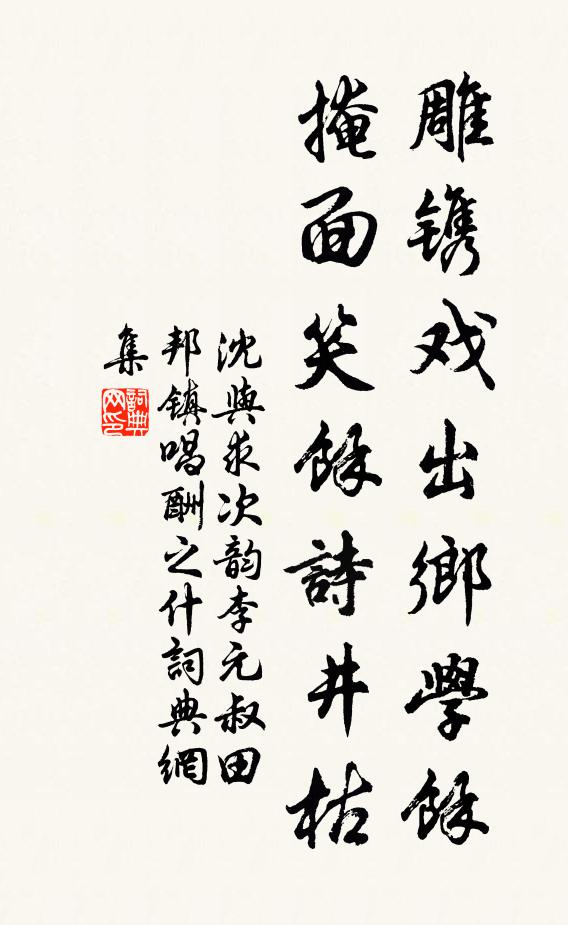 雕镌戏出鄉學餘
掩面笑餘詩井枯
沈與求次韵李元叔田
邦鎮唱酬之什詞典網
集
詞典网印